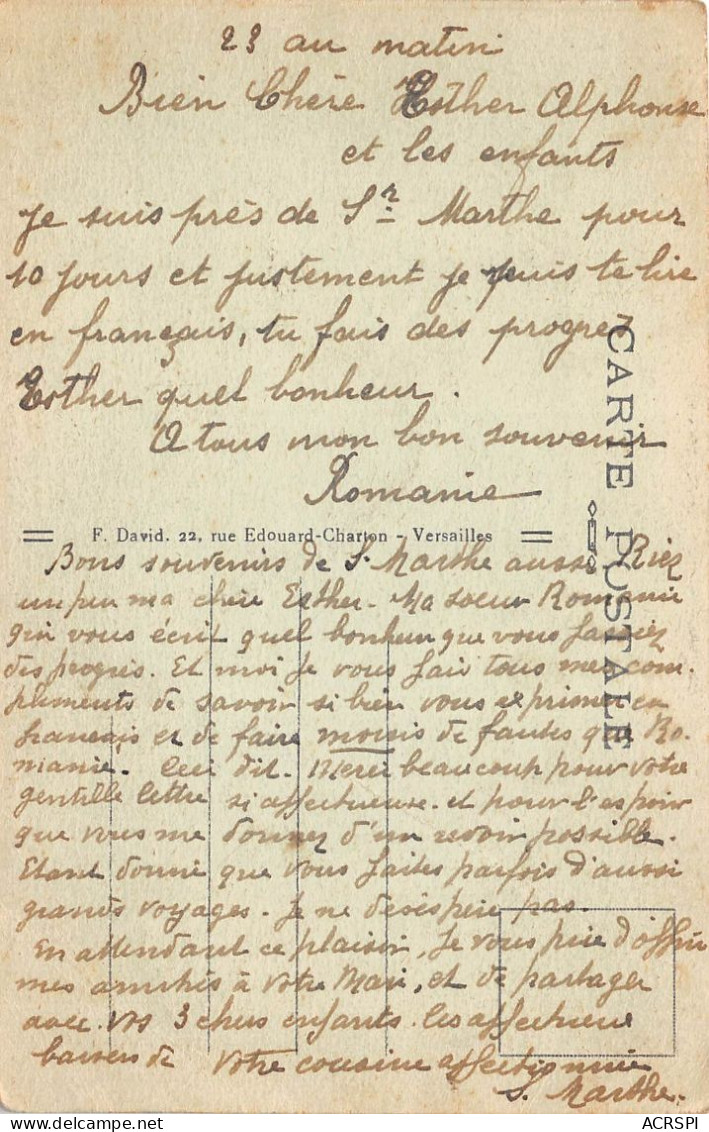 23 au matin
Bien Chère Esther Alphonse
et les enfants
Je suis près de Sr Marthe pour
10 jours et justement je puis te lire
en français, tu fais des progrez
Esther quel bonheur.
A tous mon bon souvenir
Romanie
CARTE POSTALE
F. David. 22, rue Edouard-Charton - Versailles
Bons souvenirs de S. Marthe aussi Riez
un peu ma chère Esther. Ma soeur Romanie
qui vous écrit quel bonheur que vous fassiez
des progrès. Et moi je vous fais tous mes com-
pliments de savoir si bien vous exprimer en
français et de faire moins de fautes que Ro-
manie. Ceci dit. Merci beaucoup pour votre
gentille lettre si affectueuse. et pour l'espoir
que vous me donnez d'un revoir possible.
Etant donné que vous faites parfois d'aussi
grands voyages. Je ne désespère pas.
En attendant ce plaisir, Je vous prie d'offrir
mes amitiés à votre Mari, et de partager
avec vos 3 chers enfants les affectueux
baisers de votre cousine affectionnée
S. Marthe.
ACRSPI